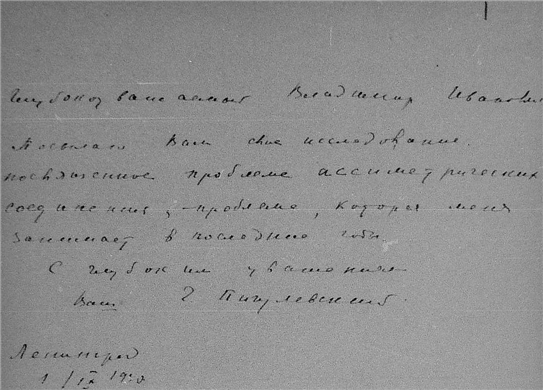 Глубокоуважаемый Владимир Иванович
Посылаю Вам свое исследование,
посвященное проблеме ассиметрических
соединений, - проблеме, которая меня
занимает в последние годы
С глубоким уважением
Ваш Г Пигулевский.
Ленинград
1/IX